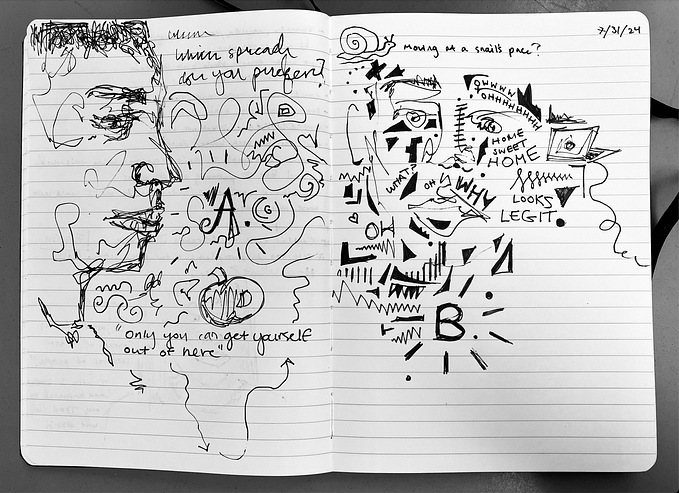 Which spreads
do you prefer?
A.
"Only you can get yourself
out of here"
7/31/24
moving at a snail's pace?
OWWWW
OHHHHHHHH
HOME
SWEET
HOME
WHAT?
OH
WHY
LOOKS
LEGIT.
OH
B